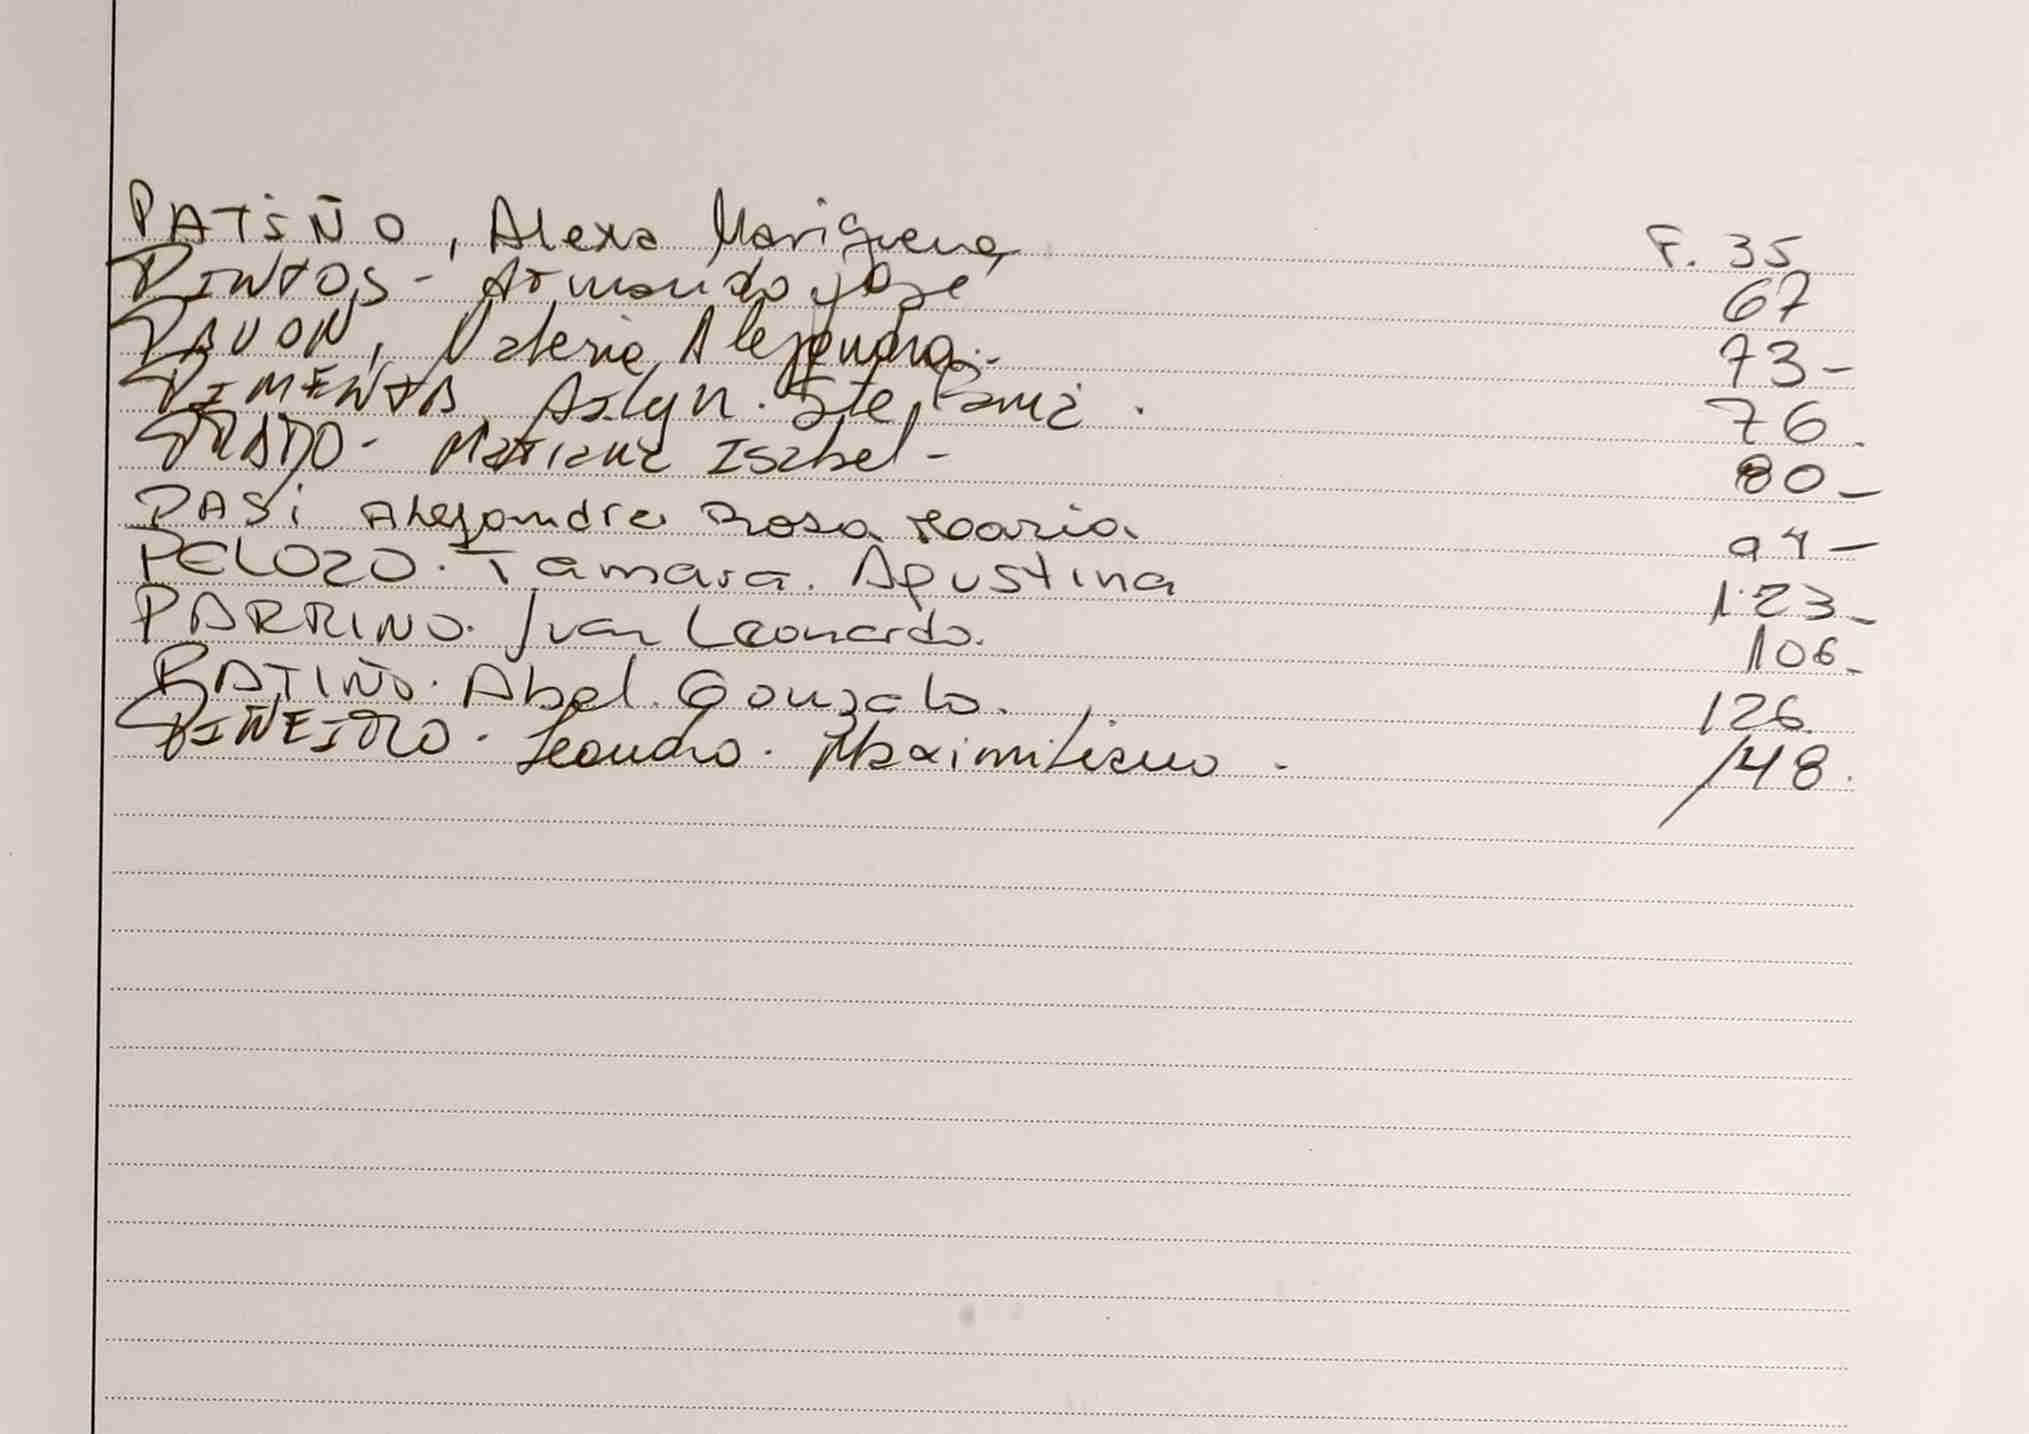 PATIÑO, Alexa Mariguena F. 35
PINTOS - Armando José 67
PAVON, Valeria Alejandra.- 73-
PIMENTA, Aslyn. Stefani. 76.
PRADO- Mariana Isabel- 80-
PASI Alejandra Rosa Maria 94-
PELOZO. Tamara. Agustina 123-
PARRINO. Ivan Leonardo. 106-
PATIÑO. Abel. Gonzalo. 126.
PIÑEIRO. Leandro. Maximiliano. 148.